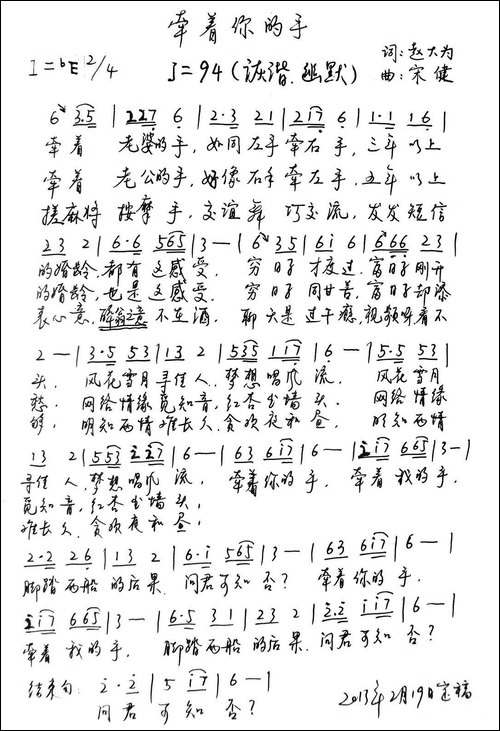 牵着你的手
1=♭E 2/4 J=94(诙谐.幽默) 词:赵大为
曲:宋健
6 3.5 | 227 6 | 2·3 21 | 217 6 | 1·1 16 |
牵着 老婆的手,如同左手牵右手,三年以上
牵着 老公的手,好像右手牵左手,五年以上
搓麻将 按摩手,交谊舞巧交流,发发短信
23 2 | 6·6 565 | 3 — | 6 35 | 6i 6 | 666 23 |
的婚龄,都有这感受. 穷日子才度过,富日子刚开
的婚龄,也是这感受. 穷日子同甘苦,富日子却添
表心意,醉翁之意不在酒. 聊天是过干瘾,视频呀看不
2 — | 3·5 53 | 13 2 | 535 117 | 6 — | 5·5 53 |
头. 风花雪月寻佳人,梦想唱风流. 风花雪月
愁. 网络情缘觅知音,红杏出墙头. 网络情缘
够. 明知两情难长久,贪欢夜和昼. 明知两情
13 2 | 553 ii7 | 6 — | 63 617 | 6 — | ii7 665 | 3 — |
寻佳人,梦想唱风流. 牵着你的手, 牵着我的手,
觅知音,红杏出墙头,
难长久,贪欢夜和昼,
2·2 26 | 13 2 | 6·i 565 | 3 — | 63 6i7 | 6 — |
脚踏两船的后果,问君可知否? 牵着你的手.
ii7 665 | 3 — | 6·5 31 | 23 2 | i·i ii7 | 6 — |
牵着我的手, 脚踏两船的后果,问君可知否?
结束句: 2·2 | 5 i7 | 6 — |
问君可知否?
2013年2月19日定稿